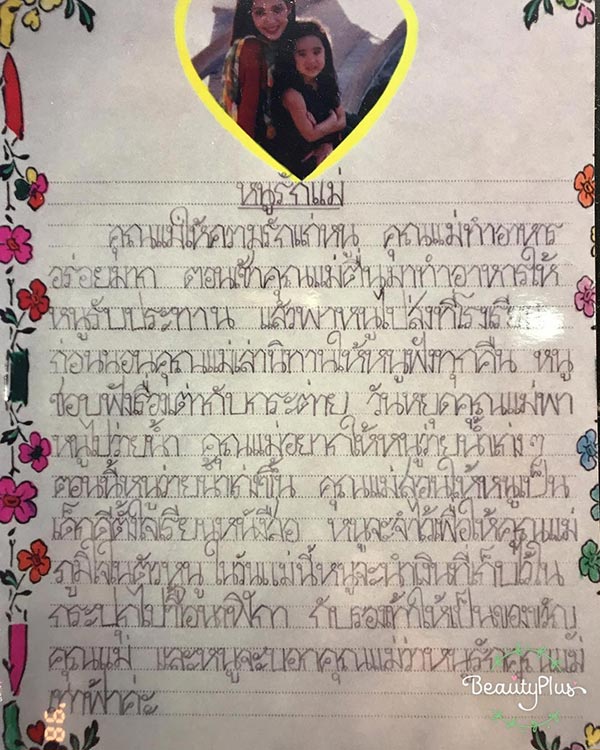 หนูรักแม่
คุณแม่ให้ความรักแก่หนู คุณแม่ทำอาหาร
อร่อยมาก ตอนเช้าคุณแม่ตื่นมาทำอาหารให้
หนูรับประทาน แล้วพาหนูไปส่งที่โรงเรียน
ก่อนนอนคุณแม่เล่านิทานให้หนูฟังทุกคืน หนู
ชอบฟังเรื่องเต่ากับกระต่าย วันหยุดคุณแม่พา
หนูไปว่ายน้ำ คุณแม่อยากให้หนูว่ายน้ำเก่ง ๆ
ตอนนี้หนูว่ายน้ำเก่งขึ้น คุณแม่สอนให้หนูเป็น
เด็กดีตั้งใจเรียนหนังสือ หนูจะจำไว้เพื่อให้คุณแม่
ภูมิใจในตัวหนู ในวันแม่นี้หนูจะนำเงินที่เก็บไว้ใน
กระปุกไปซื้อนาฬิกา กับรองเท้าให้เป็นของขวัญ
คุณแม่ และหนูจะบอกคุณแม่ว่าหนูรักคุณแม่
เท่าฟ้าค่ะ
BeautyPlus
98